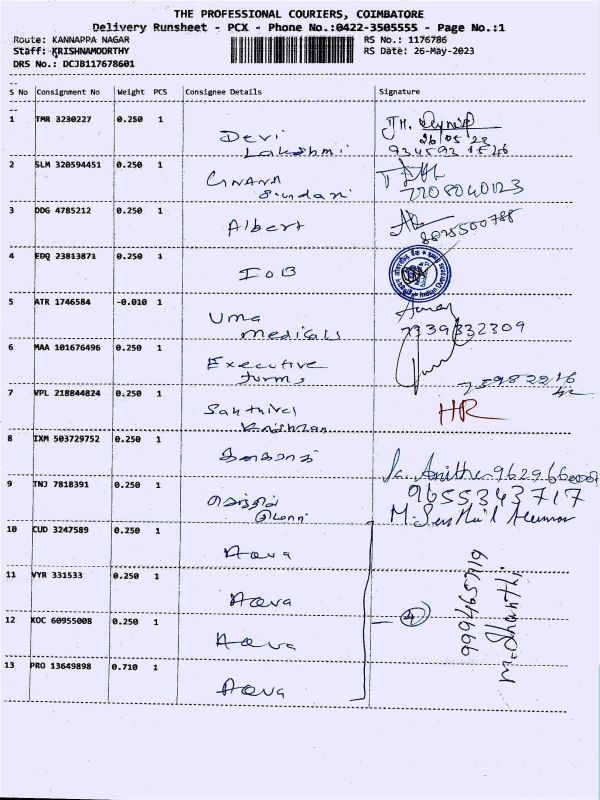 THE PROFESSIONAL COURIERS, COIMBATORE
Delivery Runsheet - PCX - Phone No.:0422-3505555 - Page No.:1
Route: KANNAPPA NAGAR
Staff: KRISHNAMOORTHY
DRS No.: DCJB117678601
RS No.: 1176786
RS Date: 26-May-2023
S No Consignment No Weight PCS Consignee Details Signature
1 TMR 3230227 0.250 1
Devi
Lakshmi
26/05/23
2 SLM 320594451 0.250 1
Gnana
Sundari
7708040123
3 DDG 4785212 0.250 1
Albert
8825500788
4 EDQ 23813871 0.250 1
IOB
5 ATR 1746584 -0.010 1
Uma
medicals
7339332309
6 MAA 101676496 0.250 1
Executive
7 VPL 218844824 0.250 1
Sakthivel
Krishnan
HR
8 IXM 503729752 0.250 1
9 TNJ 7818391 0.250 1
செந்தில்
குமார்
9655343717
M. Senthil Kumar
10 CUD 3247589 0.250 1
Aava
11 VYR 331533 0.250 1
Aava
12 KOC 60955008 0.250 1
Aava
4
13 PRO 13649898 0.710 1
Aava
9994657919
M. Shanthi